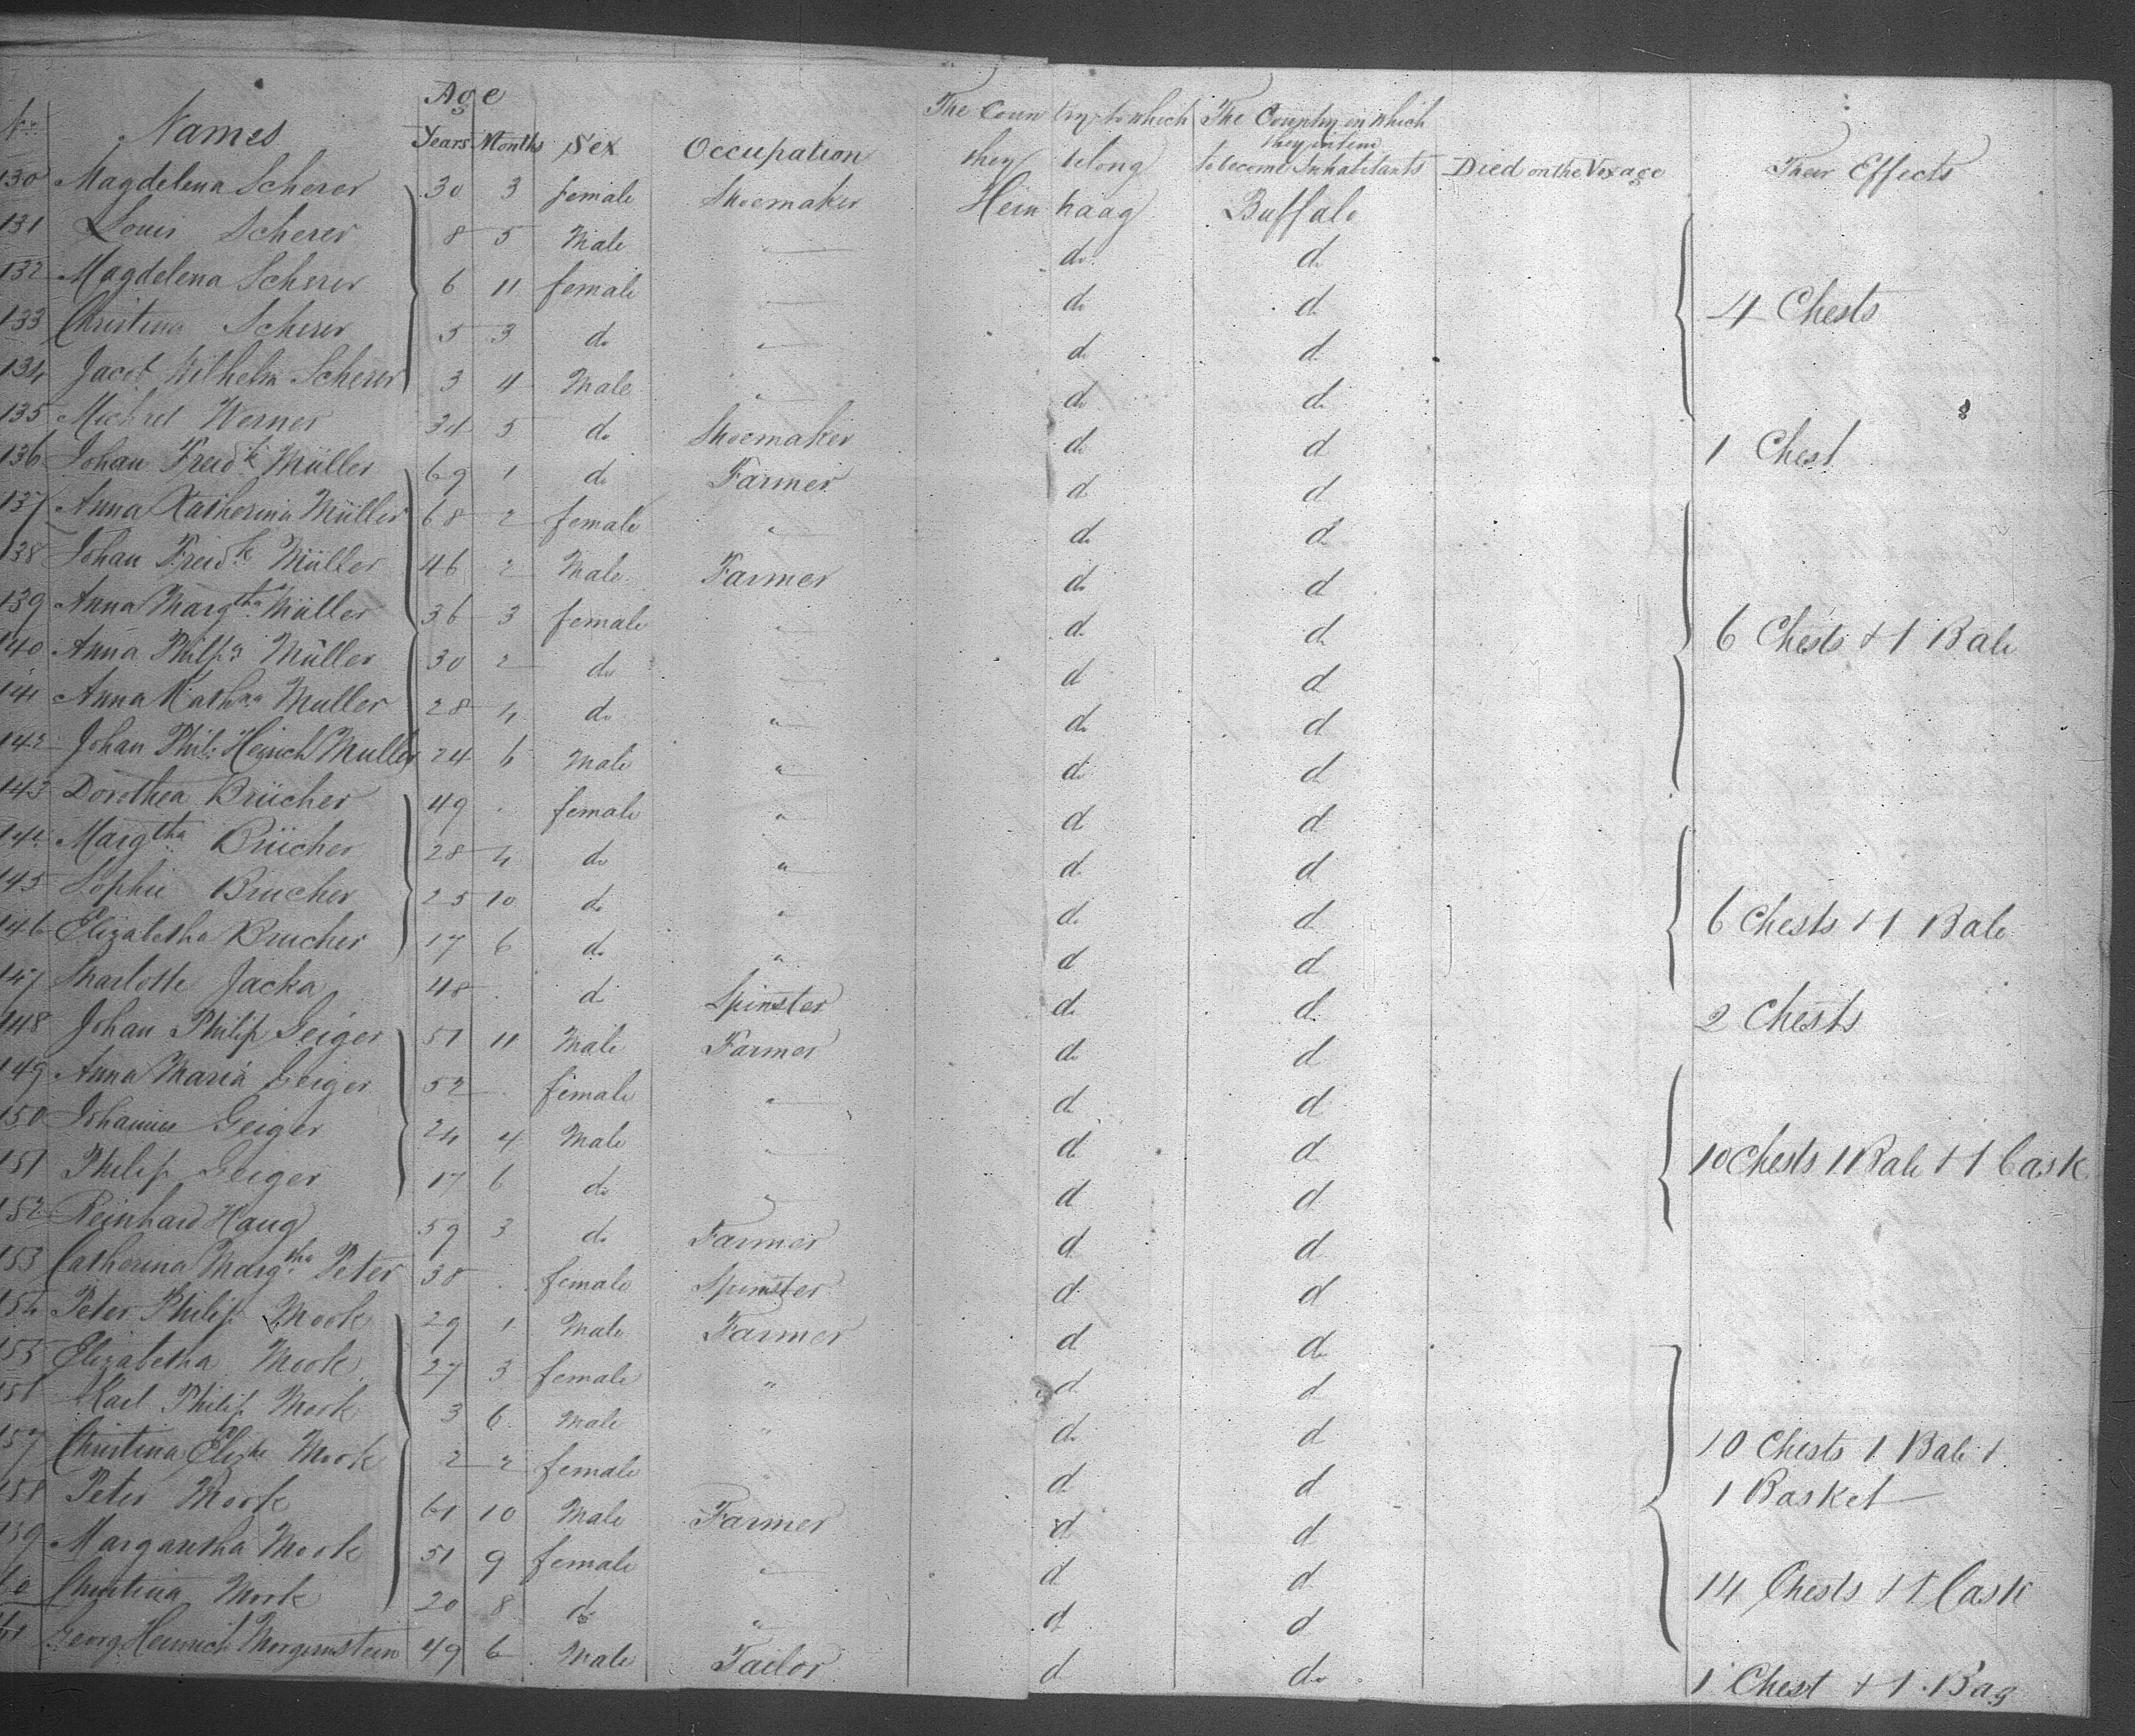 No. Names Age Years Months Sex Occupation The Country to which they belong The Country in which they intend to become Inhabitants Died on the Voyage Their Effects
130 Magdelena Scherer 30 3 female Shoemaker Hein haag Buffalo
131 Louis Scherer 8 5 Male " do. do
132 Magdelena Scherer 6 11 female " do do 4 Chests
133 Christina Scherer 5 3 do " do do
134 Jacob Wilhelm Scherer 3 4 Male " do do
135 Michael Werner 34 5 do Shoemaker do do 1 Chest
136 Johan Freidk Müller 69 1 do Farmer do do
137 Anna Katherina Müller 68 2 female " do do
138 Johan Freidk Müller 46 2 Male Farmer do do
139 Anna Margtha Müller 36 3 female " do do 6 Chests + 1 Bale
140 Anna Philpa Müller 30 2 do " do do
141 Anna Kathna Muller 28 4 do " do do
142 Johan Phil. Heinrich Muller 24 6 Male " do do
143 Dorothea Brücher 49 . female " do do
144 Margtha Brücher 28 4 do " do do
145 Sophie Brucher 25 10 do " do do 6 Chests + 1 Bale
146 Elizabetha Brucher 17 6 do " do do
147 Sharlotte Jacka 48 . do Spinster do do 2 Chests
148 Johan Philip Geiger 51 11 Male Farmer do do
149 Anna Maria Geiger 52 . female " do do
150 Johannes Geiger 24 4 Male " do do 10 Chests 1 Bale + 1 Cask
151 Philip Geiger 17 6 do " do do
152 Reinhard Haug 59 3 do Farmer do do
153 Catherina Margtha Peter 38 . female Spinster do do
154 Peter Philip Mook 29 1 Male Farmer do do
155 Elizabetha Mook 27 3 female " do do
156 Karl Philip Mook 3 6 Male " do do
157 Christina Elizth Mook 2 2 female " do do 10 Chests 1 Bale +
158 Peter Mook 61 10 Male Farmer do do 1 Basket
159 Margaretha Mook 51 9 female " do do
160 Christina Mook 20 8 do " do do 14 Chests + 1 Cask
161 Georg Heinrich Morgenstein 49 6 Male Tailor do do 1 Chest + 1 Bag